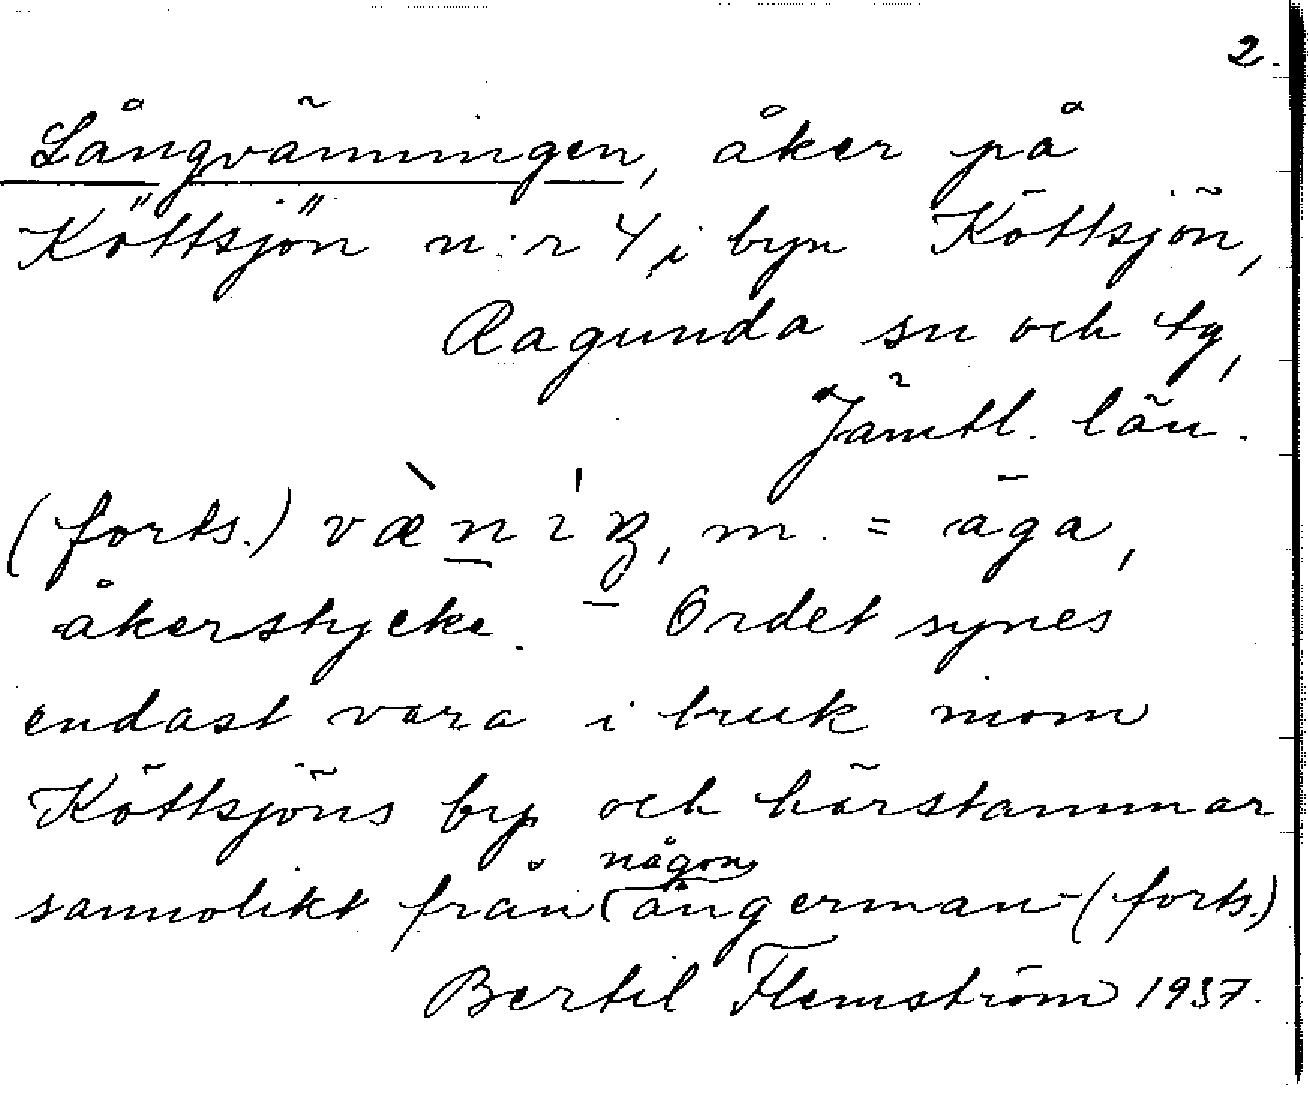 2.
Långvänningen, åker på
Köttsjön n:r 4, i byn Köttsjön,
Ragunda sn och tg,
Jämtl. län.
(forts.) m. = äga,
åkerstycke. Ordet synes
endast vara i bruk inom
Köttsjöns by och härstammar
sannolikt från någon ångerman- (forts.)
Bertil Flemström 1937.